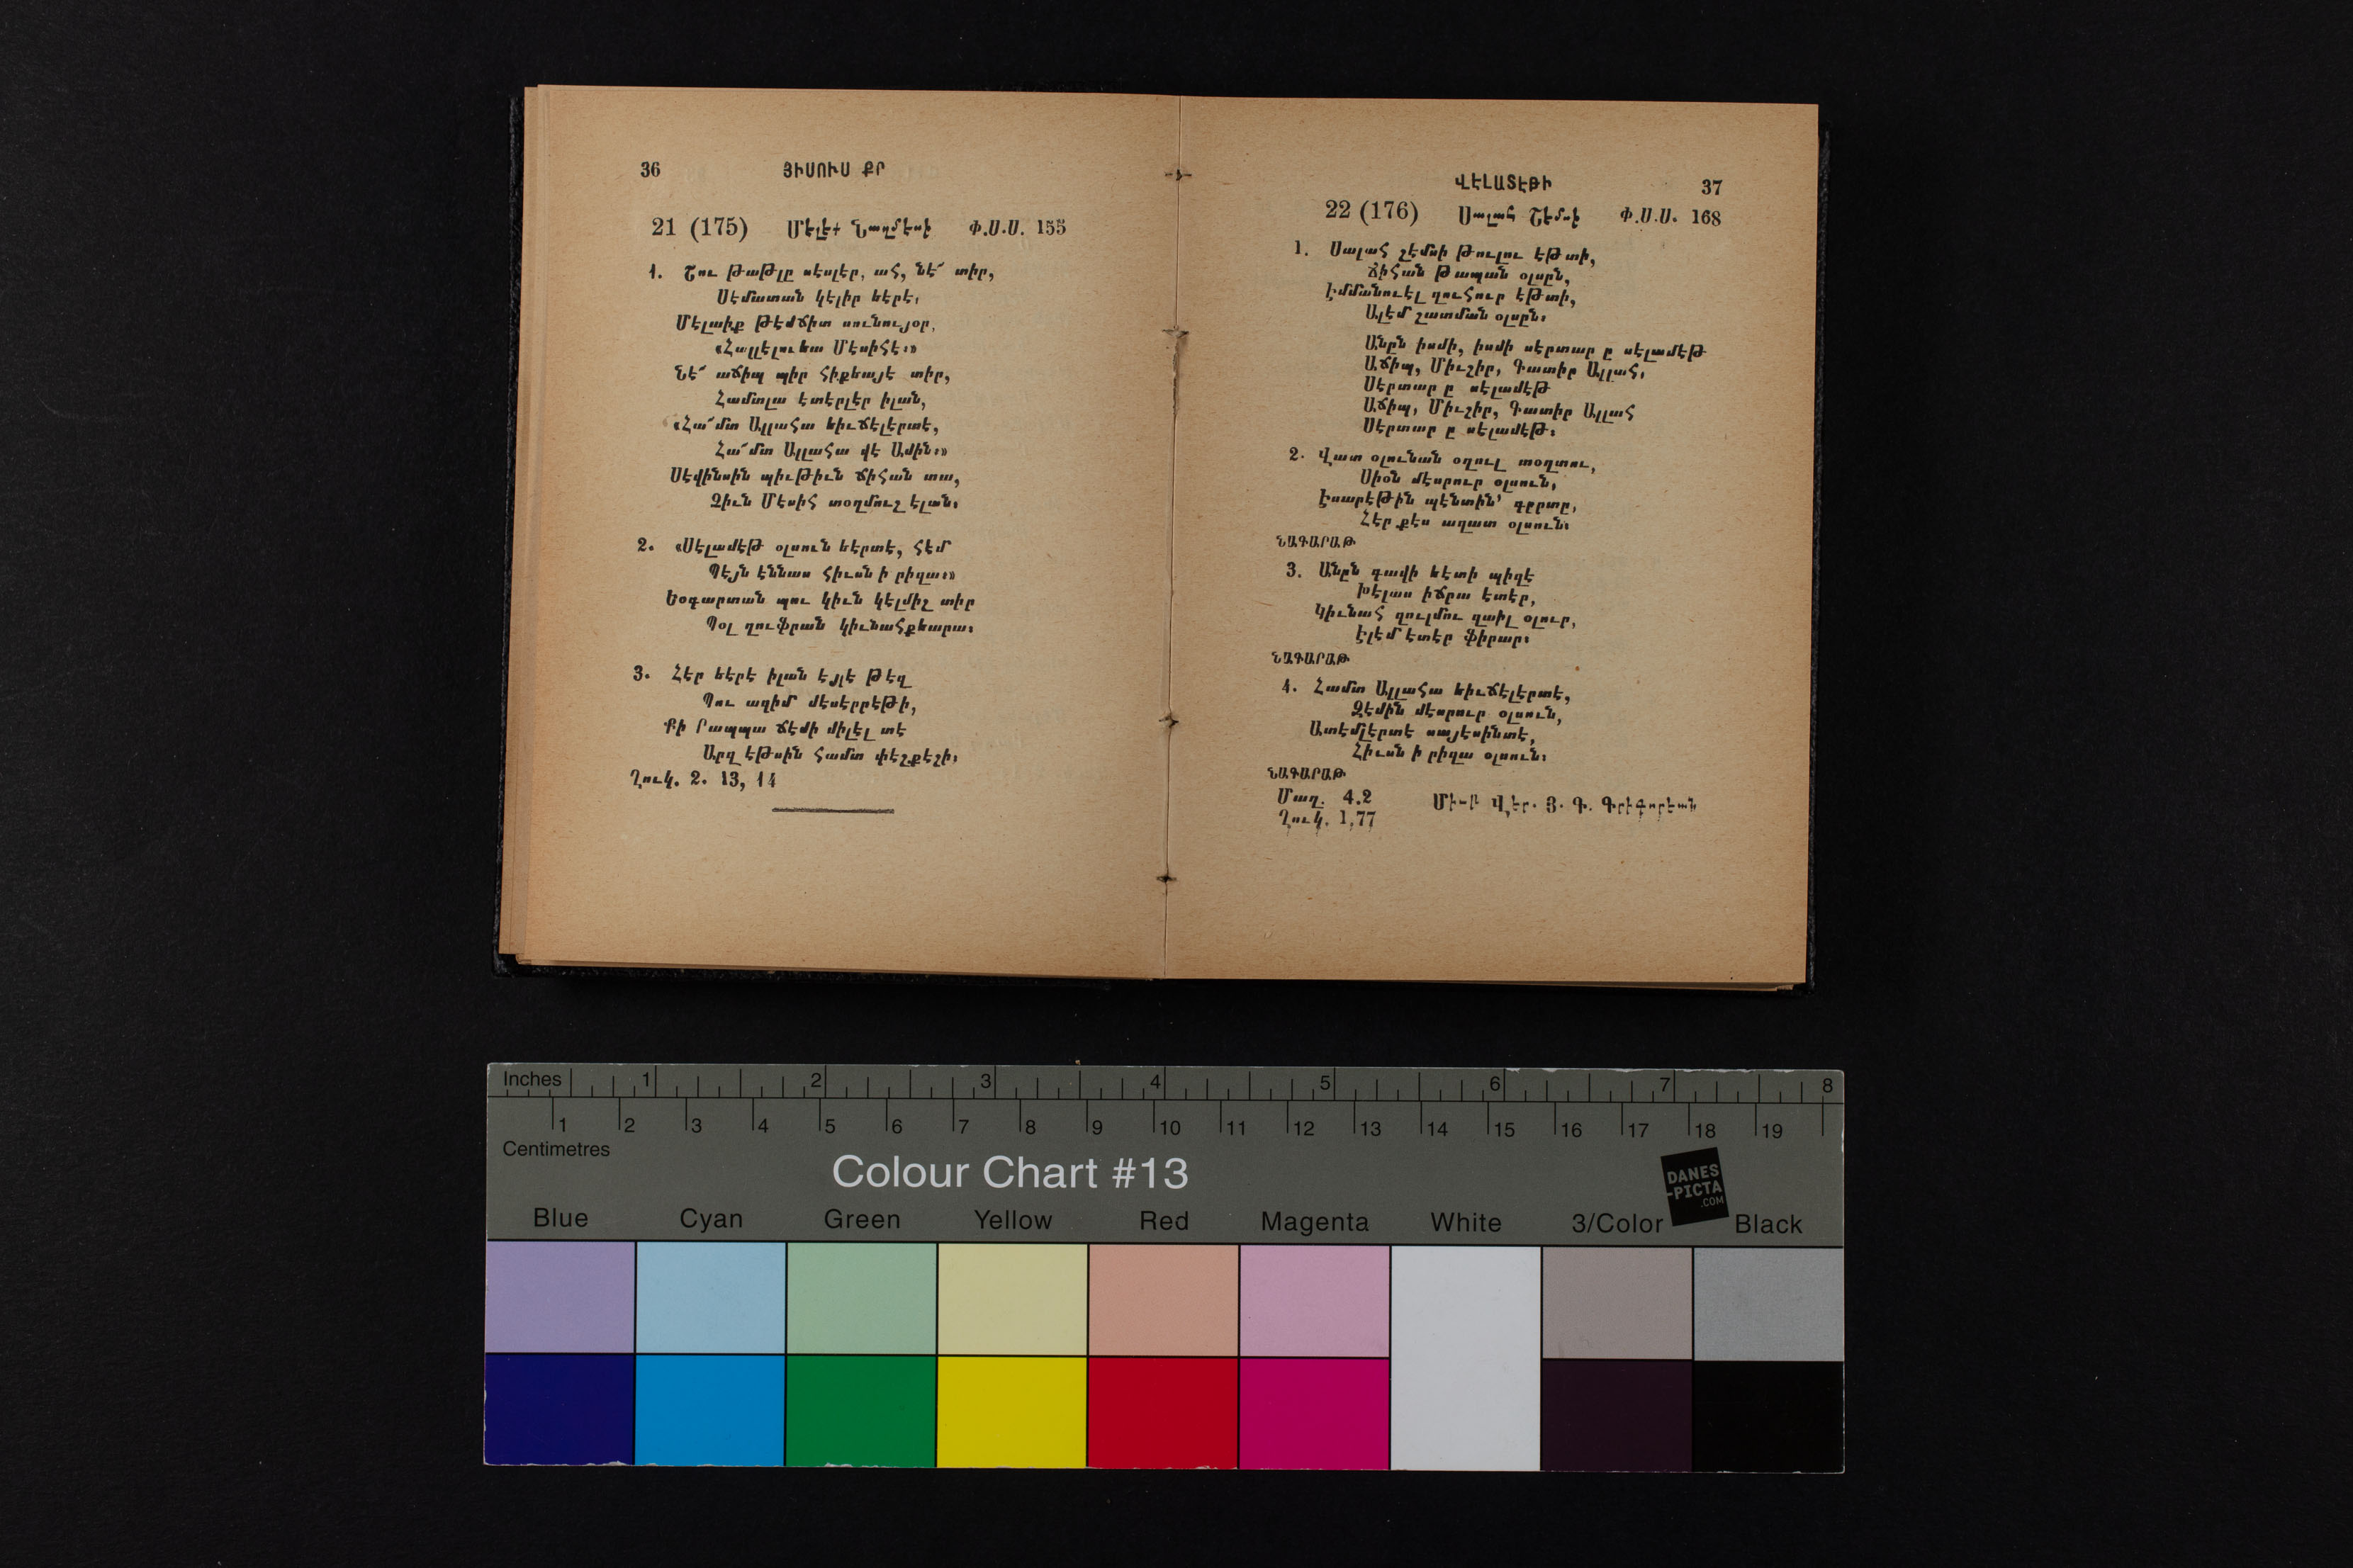 36 ՅԻՍՈՒՍ ՔՐ
21 (175) Մէլէք Նաղմէսի Փ.Ս.Ս. 155
1. Շու թաթլը սէսլէր, ահ, նէ՜ տիր,
Սէմատան կէլիր եէրէ,
Մէլաիք թէմճիտ սունույօր,
«Հալլէլուեա Մէսիհէ։»
Նէ՜ աճիպ պիր հիքեայէ տիր,
Համտլա էտէրլէր իլան,
«Հա՜մտ Ալլահա եիւճէլէրտէ,
Հա՜մտ Ալլահա վէ Ամին։»
Սէվինսին պիւթիւն ճիհան տա,
Զիւն Մէսիհ տօղմուշ էլան։
2. «Սէլամէթ օլսուն եէրտէ, հէմ
Պէյն էննաս հիւսն ի րիզա։»
Եօգարտան պու կիւն կէլմիշ տիր
Պօլ ղուֆրան կիւնահքեարա։
3. Հէր եէրէ իլան էյլէ թէզ
Պու ազիմ մէսէրրէթի,
Քի Րապպա ճէմի միլէլ տէ
Արզ էթսին համտ փէշքէշի։
Ղուկ. 2. 13, 14
ՎԷԼԱՏԷԹԻ 37
22 (176) Սալահ Շէմսի Փ.Ս.Ս. 168
1. Սալահ շէմսի թուլու էթտի,
Ճիհան թապան օլսըն,
Էմմանուէլ զուհուր էթտի,
Ալէմ շատման օլսըն։
Անըն իսմի, իսմի սէրտար ը սէլամէթ
Աճիպ, Միւշիր, Գատիր Ալլահ,
Սէրտար ը սէլամէթ
Աճիպ, Միւշիր, Գատիր Ալլահ
Սէրտար ը սէլամէթ։
2. Վատ օլունան օղուլ տօղտու,
Սիօն մէսրուր օլսուն,
Էսարէթին պէնտին՚ գըրտը,
Հէր քէս ազատ օլսուն։
ՆԱԳԱՐԱԹ
3. Անըն գավի եէտի պիզէ
Խէլաս իճրա էտէր,
Կիւնահ զուլմու զաիլ օլուր,
Էլէմ էտէր ֆիրար։
ՆԱԳԱՐԱԹ
4. Համտ Ալլահա եիւճէլէրտէ,
Զէմին մէսրուր օլսուն,
Ատէմլէրտէ սայէսինտէ,
Հիւսն ի րիզա օլսուն։
ՆԱԳԱՐԱԹ
Մաղ. 4.2 Վէր. Յ. Գ. Գրիգորէան
Ղուկ. 1,77
Inches 1 2 3 4 5 6 7 8
1 2 3 4 5 6 7 8 9 10 11 12 13 14 15 16 17 18 19
Centimetres
Colour Chart #13
DANES
-PICTA
.COM
Blue Cyan Green Yellow Red Magenta White 3/Color Black